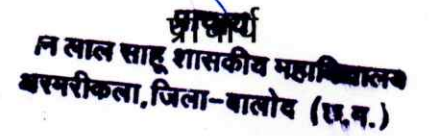 प्राचार्य
न लाल साहू शासकीय महाविद्यालय
अरमरीकला, जिला-बालोद (छ.ग.)